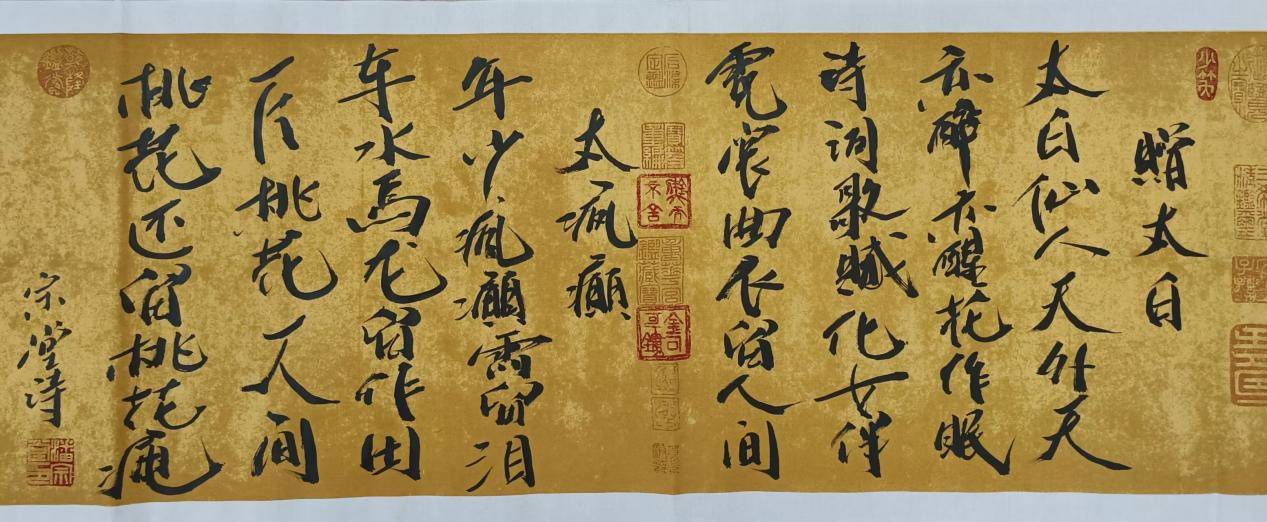 赠太白
太白仙人天外天
亦醉亦醒托作眠
诗词歌赋化女伴
霓裳曲衣留人间
太疯癫
年少疯癫需留泪
车水马龙留作田
一片桃花一人间
桃花还留桃花庵
宗诗